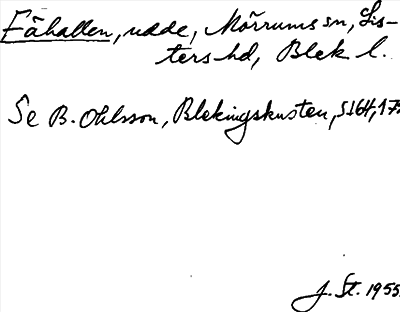 Fähallen, udde, Mörrums sn, Lis-
ters hd, Blek l.
Se B. Ohlsson, Blekingskusten, s 164, 17
J. St. 1955.